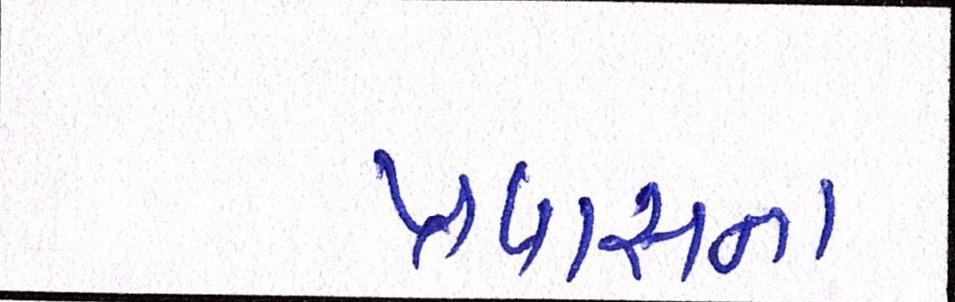 પ્રવાસના